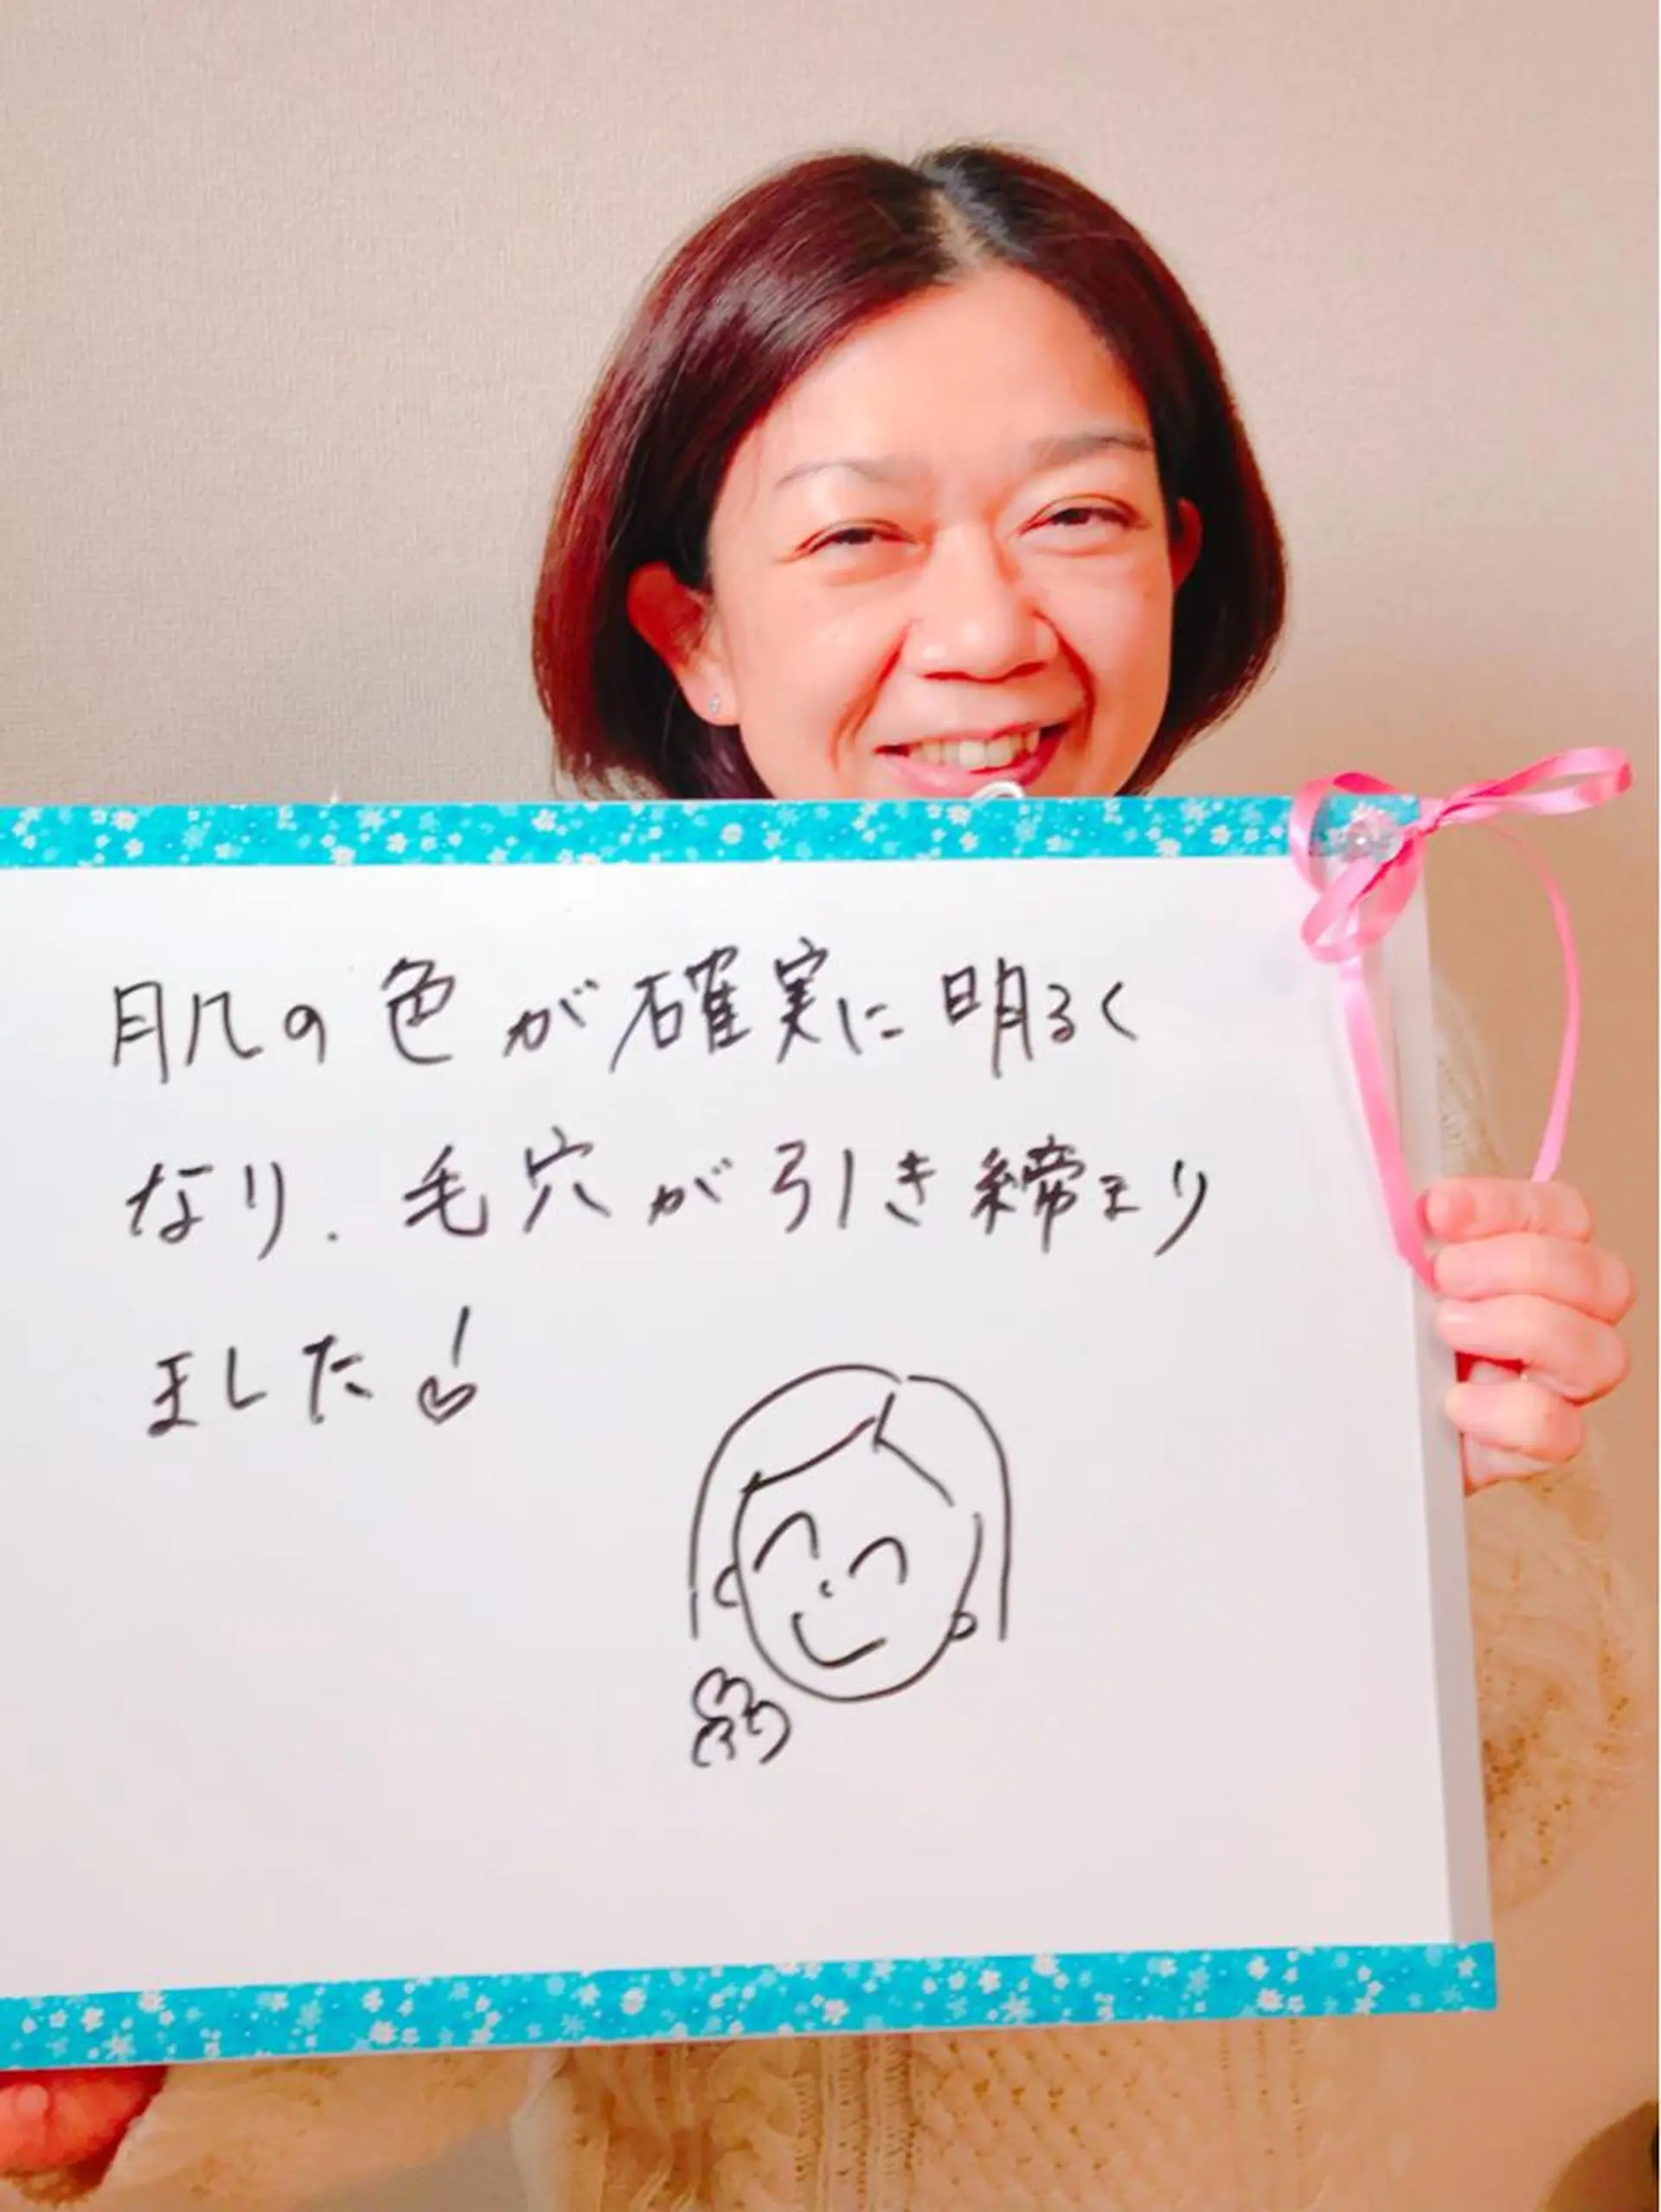 肌の色が確実に明るく
なり、毛穴が引き締まり
ました!